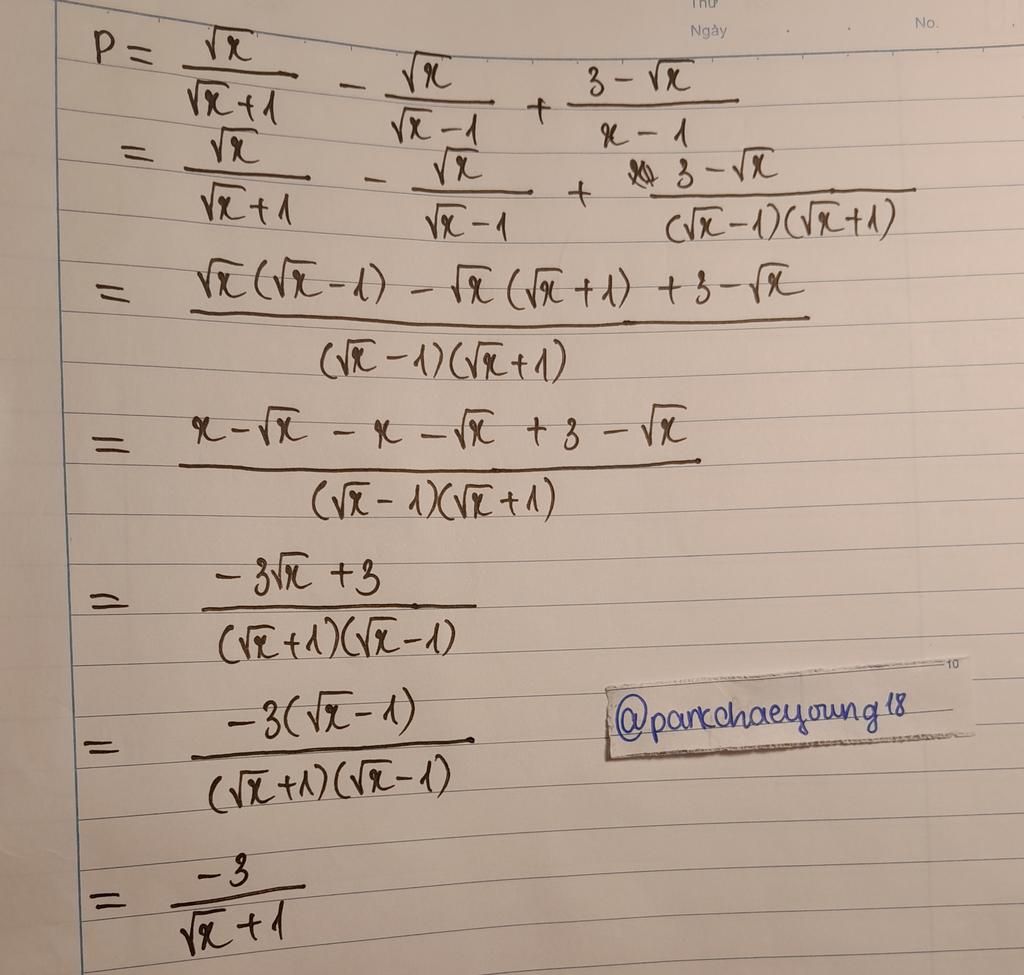 Thứ
Ngày No.
P = √x/(√x+1) − √x/(√x−1) + (3−√x)/(x−1)
= √x/(√x+1) − √x/(√x−1) + (3−√x)/((√x−1)(√x+1))
= (√x(√x−1) − √x(√x+1) + 3−√x)/((√x−1)(√x+1))
= (x−√x − x −√x + 3 −√x)/((√x−1)(√x+1))
= (−3√x+3)/((√x+1)(√x−1))
10
= (−3(√x−1))/((√x+1)(√x−1))
@parkchaeyoung18
= −3/(√x+1)